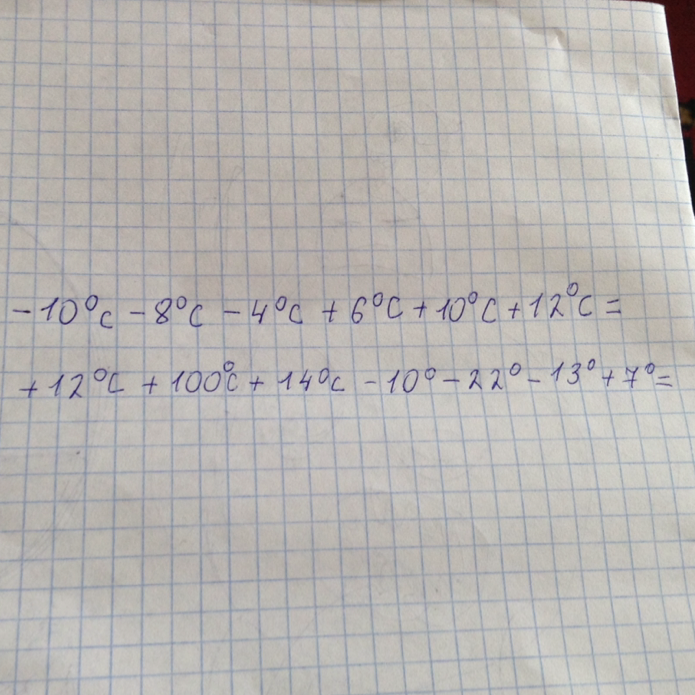 -10°C -8°C -4°C +6°C +10°C +12°C =
+12°C +100°C +14°C -10° -22° -13° +7° =